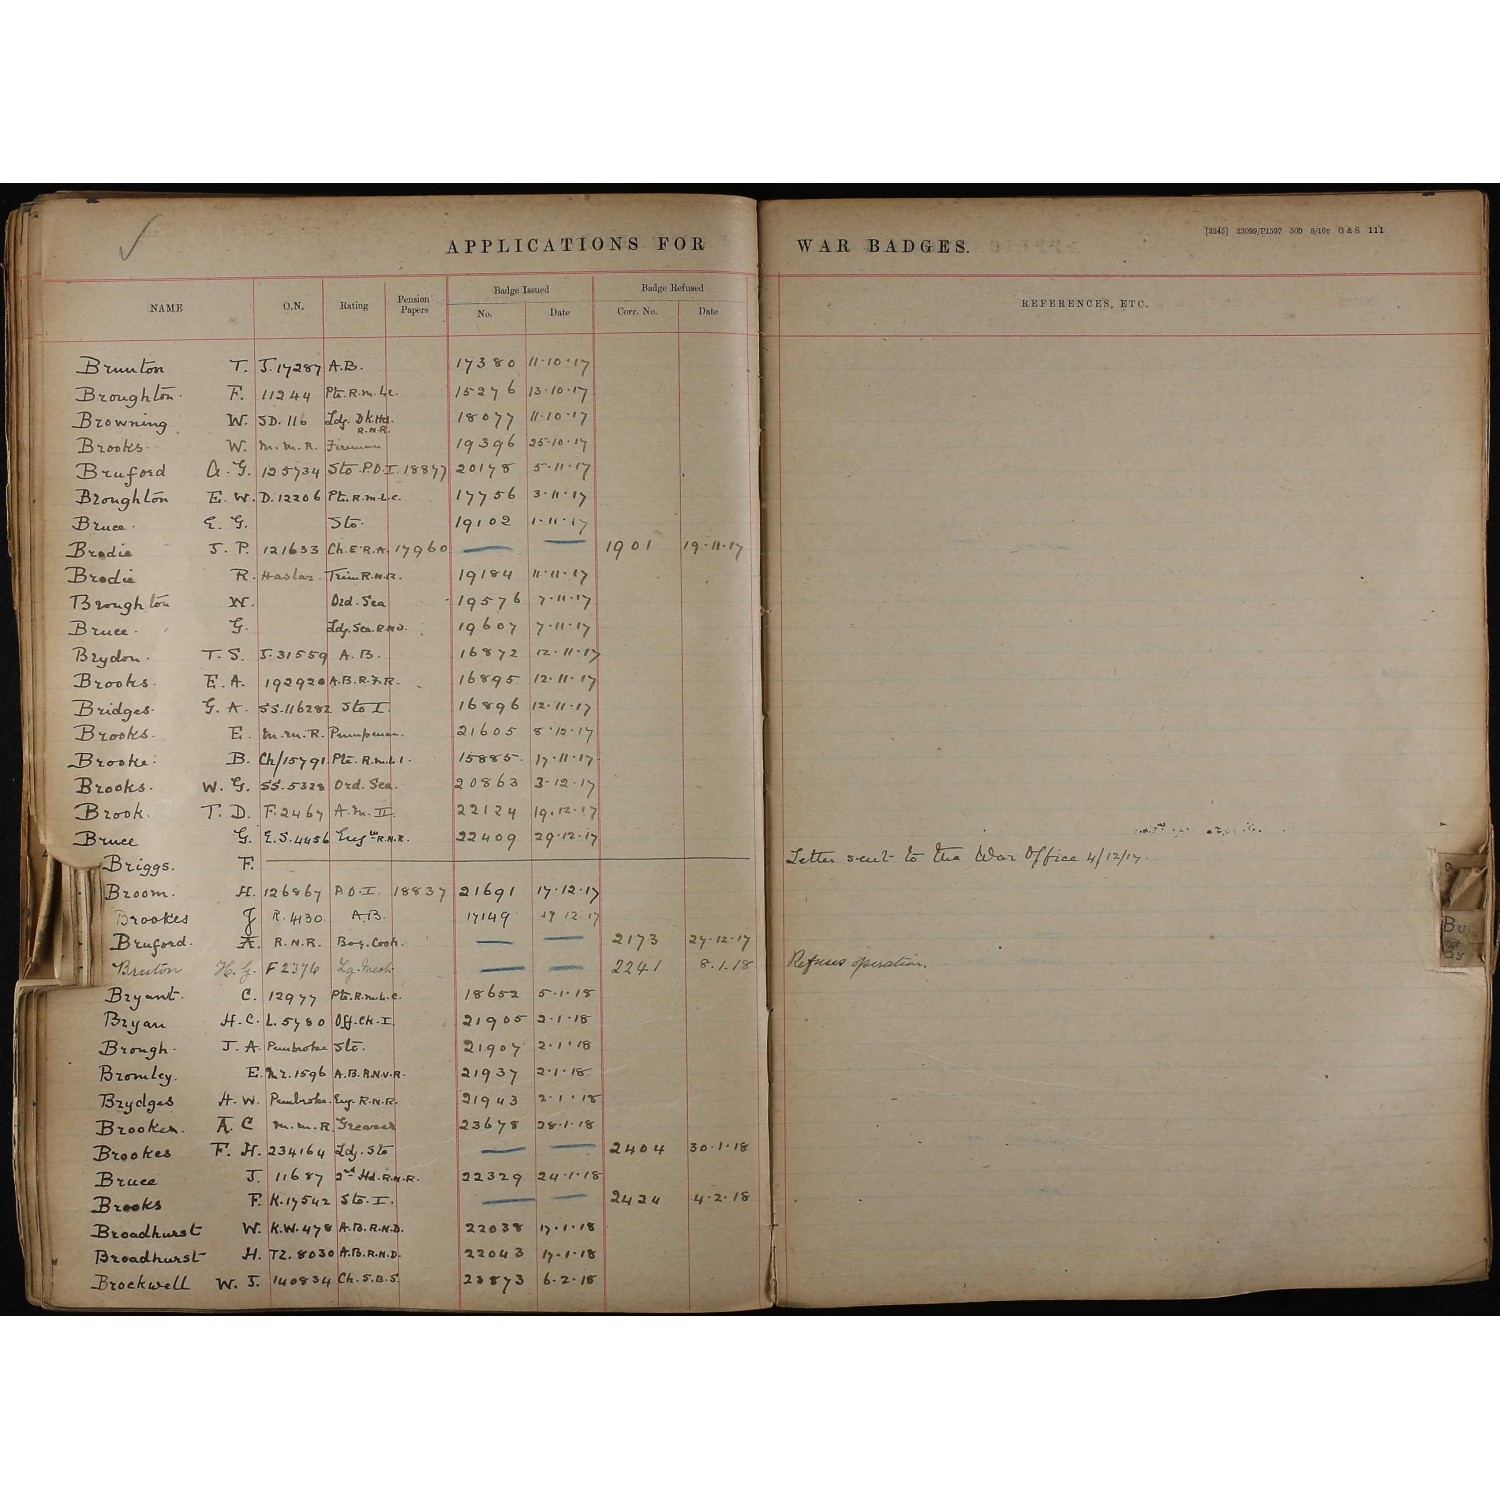 APPLICATIONS FOR WAR BADGES.
[3245] 23099/P1597 500 8/16T G & S 111
NAME O.N. Rating Pension Papers Badge Issued No. Date Badge Refused Corr. No. Date REFERENCES, ETC.
Brunton T. J.17287 A.B. 17380 11.10.17
Broughton. F. 11244 Pte. R.M.L.I. 15276 13.10.17
Browning W. SD.116 Ldg. Dk. Hd. R.N.R. 18077 11.10.17
Brooks. W. M.M.R. Fireman 19396 25.10.17
Bruford A.G. 125734 Sto P.O.I. 18877 20178 5.11.17
Broughton E.W. D.12206 Pte. R.M.L.I. 17756 3.11.17
Bruce. E.G. Sto. 19102 1.11.17
Brodie J.P. 121633 Ch.E.R.A. 17960 — — 1901 19.11.17
Brodie R. Haslar. Trim R.N.R. 19184 11.11.17
Broughton W. Ord. Sea 19576 7.11.17
Bruce. G. Ldg. Sea. R.N.D. 19607 7.11.17
Brydon. T.S. J.31559 A.B. 16872 12.11.17
Brooks. E.A. 192920 A.B.R.F.R. 16895 12.11.17
Bridges. G.A. SS.116282 Sto I. 16896 12.11.17
Brooks. E. M.M.R. Pumpman. 21605 8.12.17
Brooke. B. Ch/15791 Pte. R.M.L.I. 15885 17.11.17
Brooks. W.G. SS.5328 Ord. Sea. 20863 3.12.17
Brook. T.D. F.2467 A.M.II. 22124 19.12.17
Bruce G. E.S.4456 Eng R.N.R. 22409 29.12.17
Briggs. F. Letter sent to the War Office 4/12/17.
Broom. H. 126867 P.O.I. 18837 21691 17.12.17
Brookes J R.4130 A.B. 17149 19 12 17
Bruford. A. R.N.R. Boy. Cook. — — 2173 27.12.17
Bruton H.G. F2376 Lg. Mech — — 2241 8.1.18 Refuses operation.
Bryant. C. 12977 Pte. R.M.L.I. 18652 5.1.18
Bryan H.C. L.5780 Off. Ck. I. 21905 2.1.18
Brough. J.A. Pembroke Sto. 21907 2.1.18
Bromley. E. MZ.1596 A.B.R.N.V.R. 21937 2.1.18
Brydges H.W. Pembroke. Eng. R.N.R. 21943 2.1.18
Brooker. A.C M.M.R Greaser 23678 28.1.18
Brookes F.H. 234164 Ldg. Sto — — 2404 30.1.18
Bruce J. 11687 2nd Hd. R.N.R. 22329 24.1.18
Brooks F. K.17542 Sto. I. — — 2424 4.2.18
Broadhurst W. K.W.478 A.B.R.N.D. 22038 17.1.18
Broadhurst H. TZ.8030 A.B.R.N.D. 22043 17.1.18
Brockwell W.J. 140834 Ch.S.B.S. 23873 6.2.18